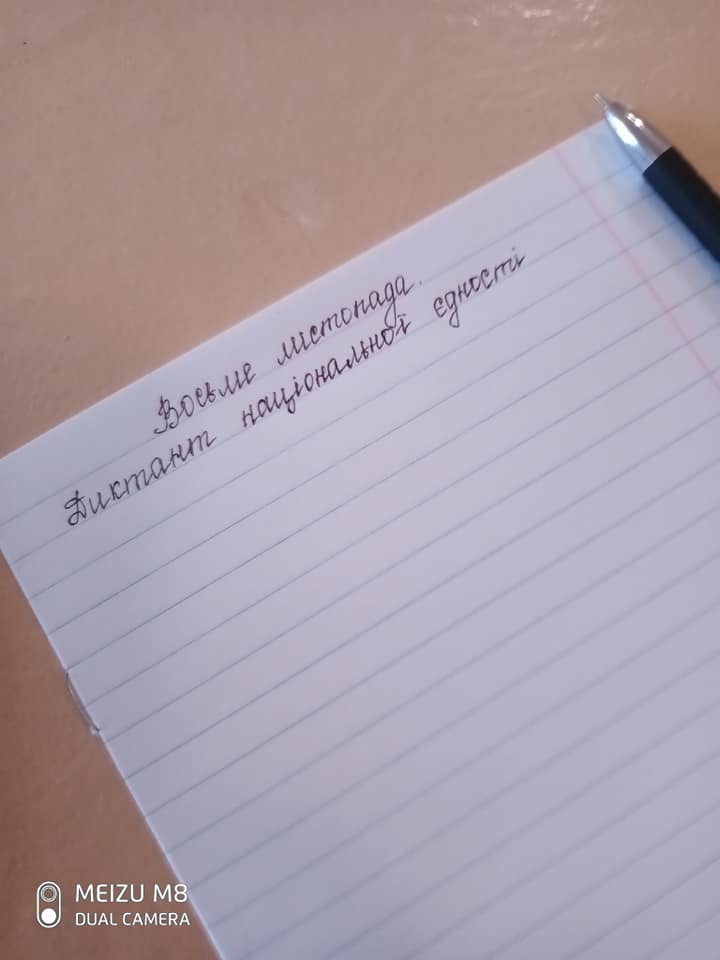 Восьме листопада.
Диктант національної єдності
MEIZU M8
DUAL CAMERA